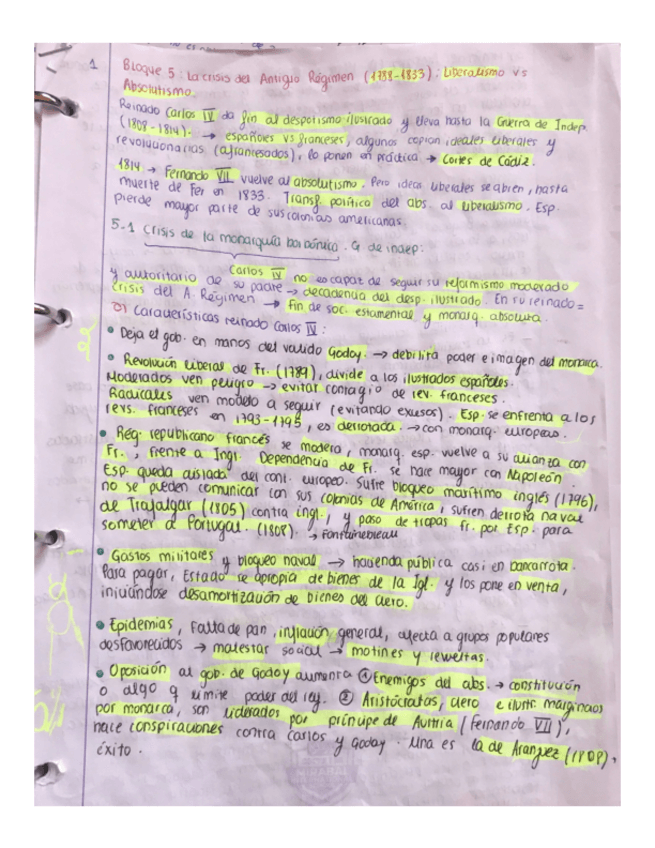 1
Bloque 5: La crisis del Antiguo Régimen (1788-1833): Liberalismo vs
Absolutismo.
Reinado Carlos IV da fin al despotismo ilustrado y lleva hasta la Guerra de Indep.
(1808-1814). → españoles vs franceses, algunos copian ideales liberales y
revolucionarias (afrancesados), lo ponen en práctica → Cortes de Cádiz.
1814 → Fernando VII vuelve al absolutismo. Pero ideas liberales se abren, hasta
muerte de Fer en 1833. Transf. política del abs. al liberalismo. Esp.
pierde mayor parte de sus colonias americanas.
5-1 Crisis de la monarquía borbónica. G de indep:
Carlos IV no es capaz de seguir su reformismo moderado
y autoritario de su padre → decadencia del desp. ilustrado. En su reinado =
crisis del A. Régimen → fin de soc. estamental y monarq. absoluta.
a) Características reinado Carlos IV:
• Deja el gob. en manos del valido Godoy. → debilita poder e imagen del monarca.
• Revolución Liberal de Fr. (1789), divide a los ilustrados españoles.
Moderados ven peligro → evitar contagio de rev. franceses.
Radicales ven modelo a seguir (evitando excesos). Esp. se enfrenta a los
revs. franceses en 1793-1795, es derrotada. → con monarq. europeas.
• Rég. republicano francés se modera, monarq. esp. vuelve a su alianza con
Fr., frente a Ingl. Dependencia de Fr. se hace mayor con Napoleón.
Esp. queda aislada del cont. europeo. Sufre bloqueo marítimo inglés (1796),
no se pueden comunicar con sus colonias de América, sufren derrota naval
de Trafalgar (1805) contra ingl., y paso de tropas fr. por Esp. para
someter a Portugal. (1807). → Fontainebleau
• Gastos militares y bloqueo naval → hacienda pública casi en bancarrota.
Para pagar, Estado se apropia de bienes de la Igl. y los pone en venta,
iniciándose desamortización de bienes del clero.
• Epidemias, falta de pan, inflación general, afecta a grupos populares
desfavorecidos → malestar social → motines y revueltas.
• Oposición al gob. de Godoy aumenta ① Enemigos del abs. → constitución
o algo q limite poder del rey. ② Aristócratas, clero e ilustr. marginados
por monarca, son liderados por príncipe de Austria (Fernando VII),
hace conspiraciones contra Carlos y Godoy. Una es la de Aranjuez (1808),
éxito.